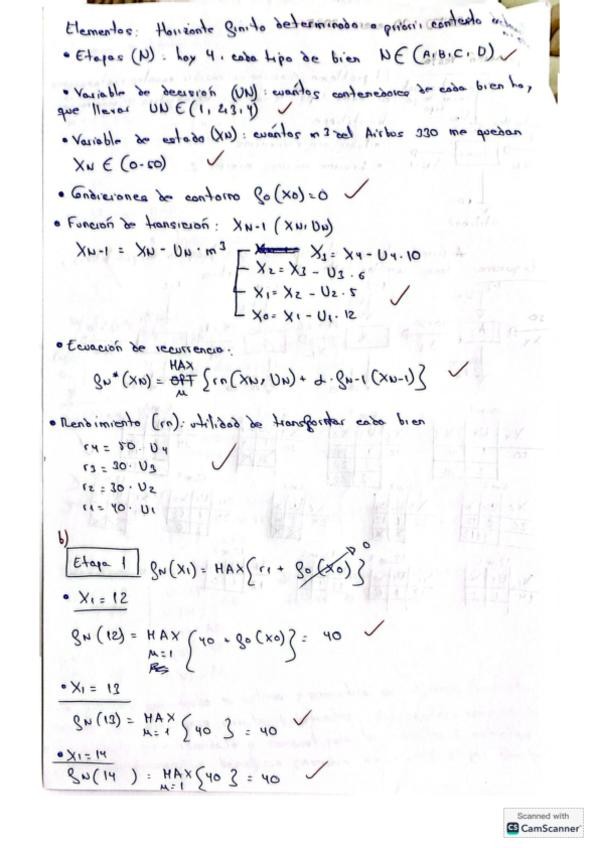 Elementos: Horizonte finito determinado a priori, contexto
• Etapas (N): hay 4, cada tipo de bien N∈(A,B,C,D)
• Variable de decisión (UN): cuántos contenedores de cada bien hay
que llevar UN∈(1,2,3,4)
• Variable de estado (XN): cuántos m³ del Airbus 330 me quedan
XN ∈ (0-50)
• Condiciones de contorno f0(X0)=0
• Función de transición: XN-1 (XN, UN)
XN-1 = XN - UN · m³
X3 = X4 - U4·10
X2 = X3 - U3·6
X1 = X2 - U2·5
X0 = X1 - U1·12
• Ecuación de recurrencia:
fN*(XN) = MAX {rn(XN, UN) + α·fN-1(XN-1)}
μ
• Rendimiento (rn): utilidad de transportar cada bien
r4 = 50· U4
r3 = 30· U3
r2 = 30· U2
r1 = 40· U1
b)
Etapa 1 fN(X1) = MAX{r1 + f0(X0)} 0
• X1 = 12
fN(12) = MAX {40 + f0(X0)} = 40
μ=1
• X1 = 13
fN(13) = MAX {40} = 40
μ=1
• X1=14
fN(14) = MAX {40} = 40
μ=1
Scanned with
CS CamScanner